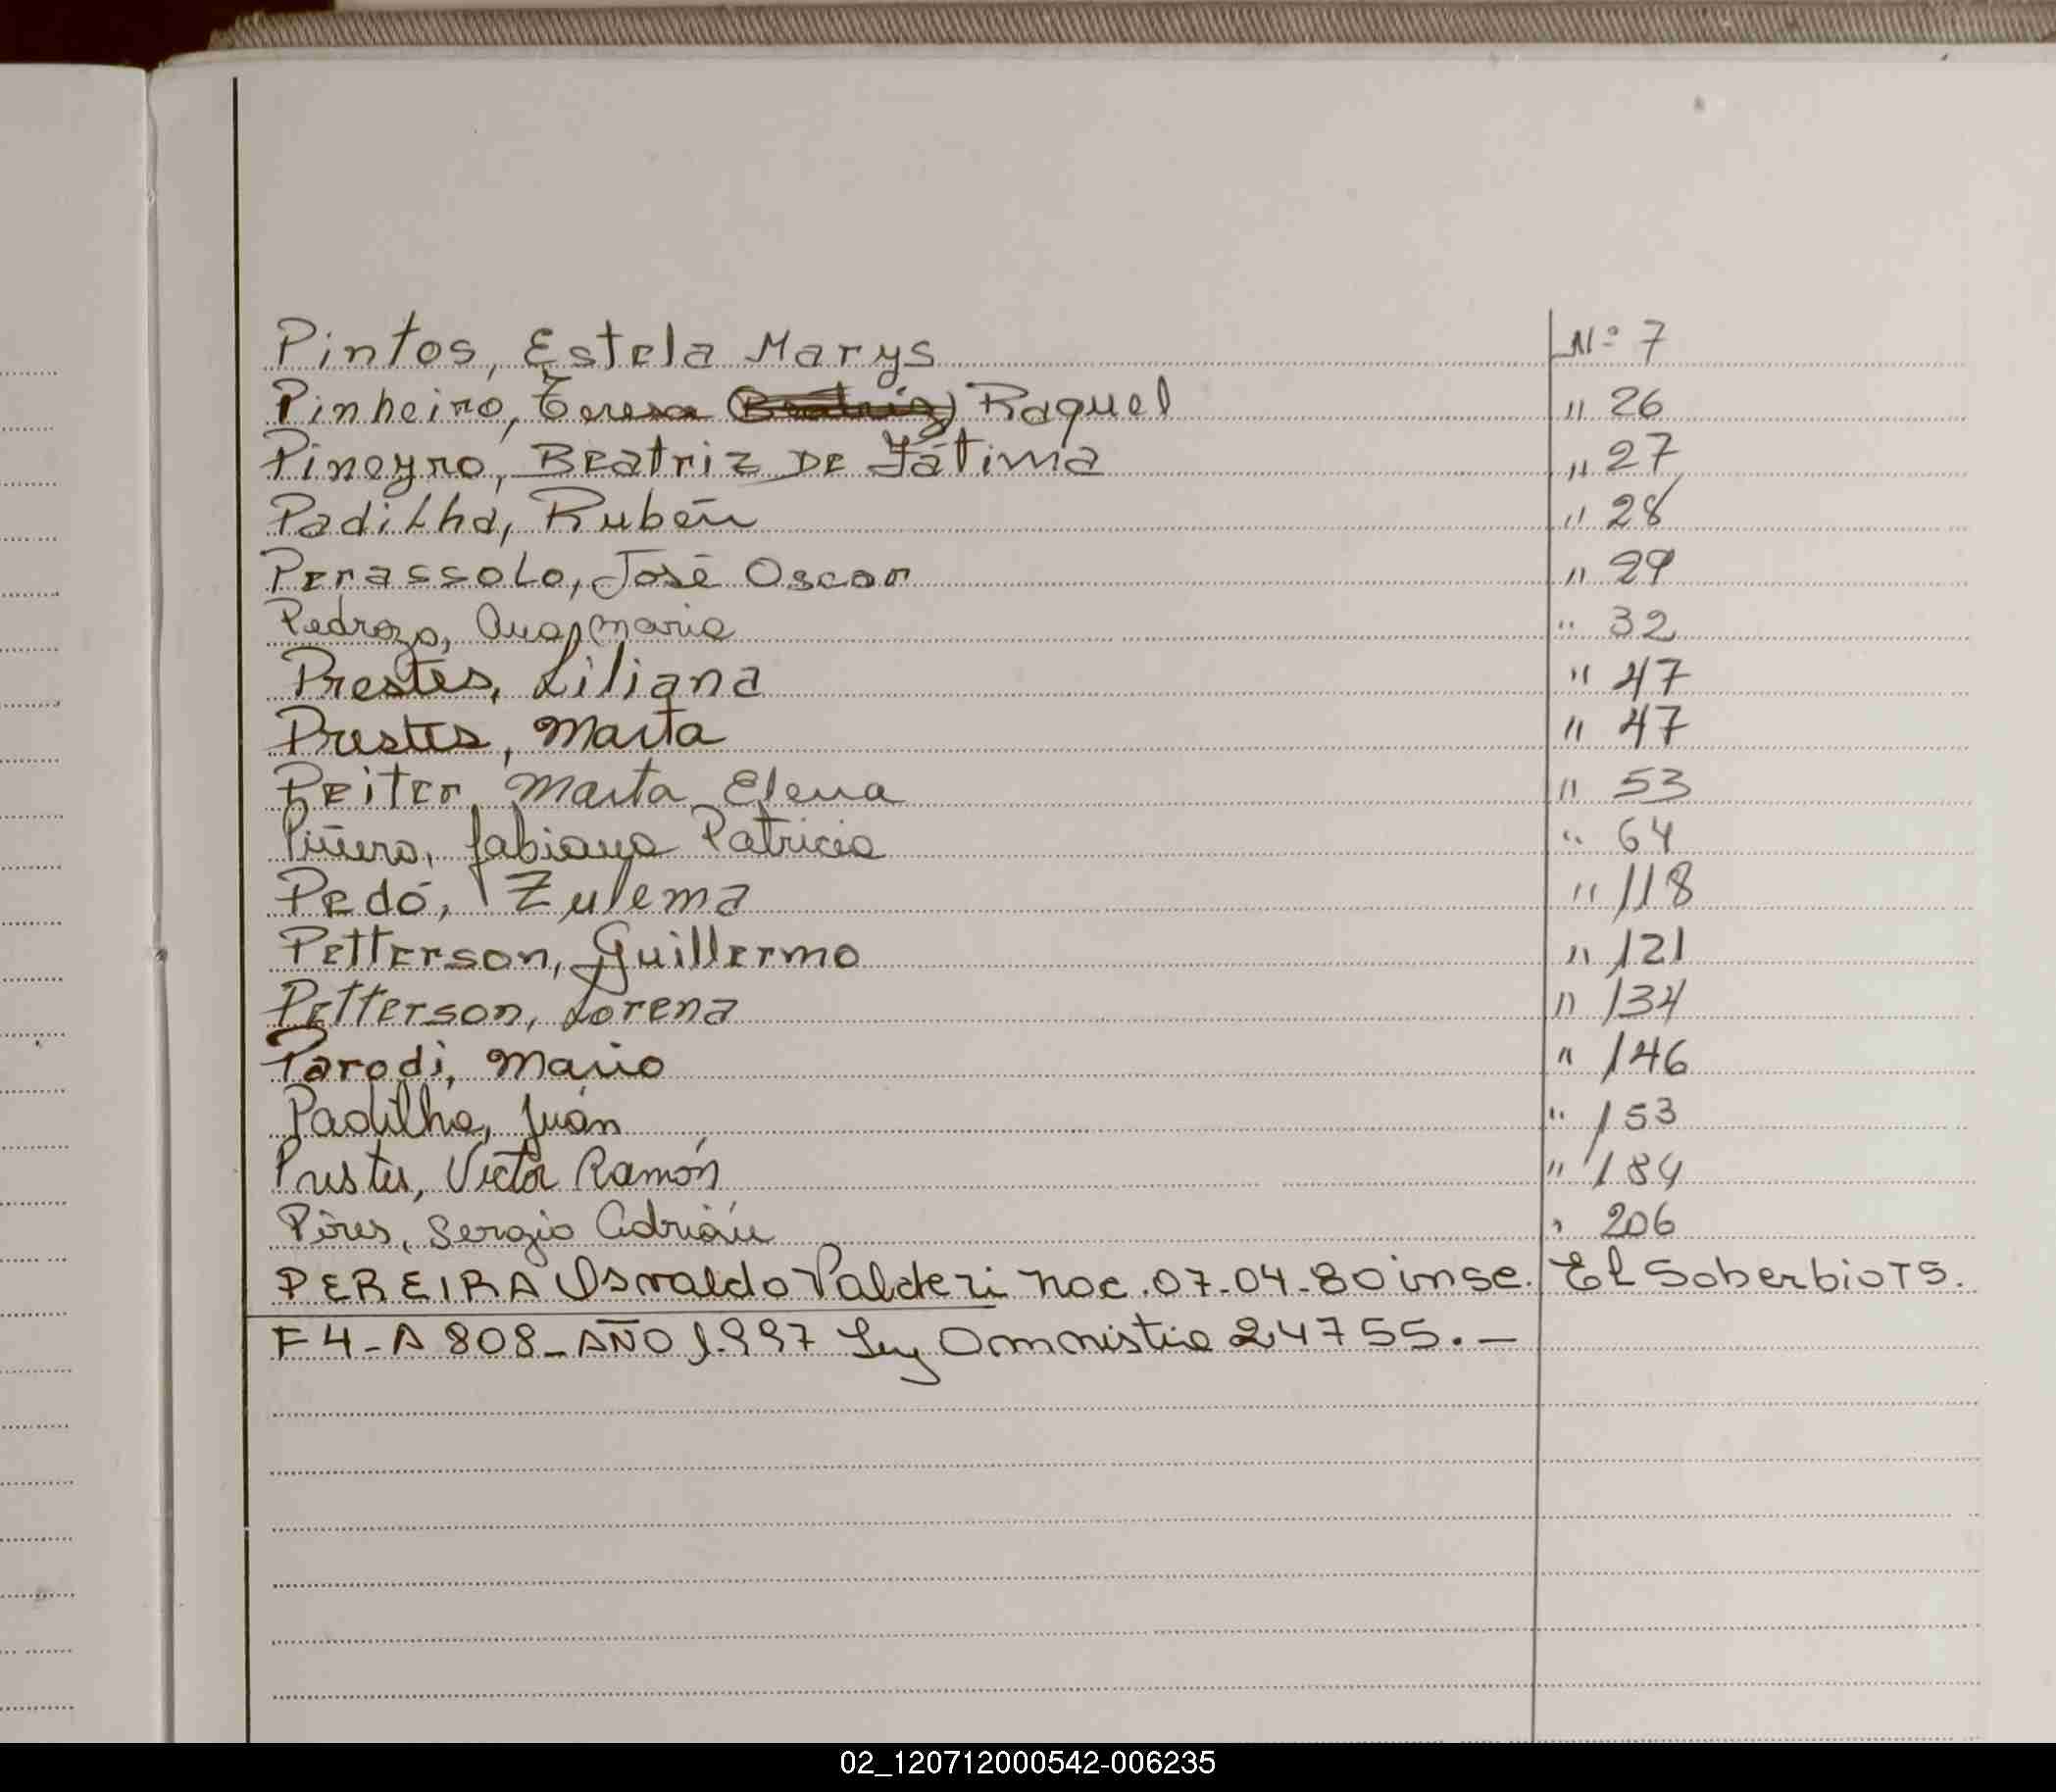 Pintos, Estela Marys Nº 7
Pinheiro, Teresa (Beatriz) Raquel " 26
Pineyro, Beatriz De Fátima " 27
Padilha, Rubén " 28
Perassolo, José Oscar " 29
Pedrozo, Ana Maria " 32
Prestes, Liliana " 47
Prestes, Marta " 47
Peiter, Marta Elena " 53
Piñero, Fabiana Patricia " 64
Pedó, Zulema " 118
Petterson, Guillermo " 121
Petterson, Lorena " 134
Parodi, Mario " 146
Padilha, Juán " 153
Prestes, Victor Ramón " 184
Pires, Sergio Adrián " 206
PEREIRA Osvaldo Valderi nac. 07-04-80 insc. El Soberbio TS.
F 4-A 808-AÑO 1.997 Ley Amnistia 24755.-
02_120712000542-006235